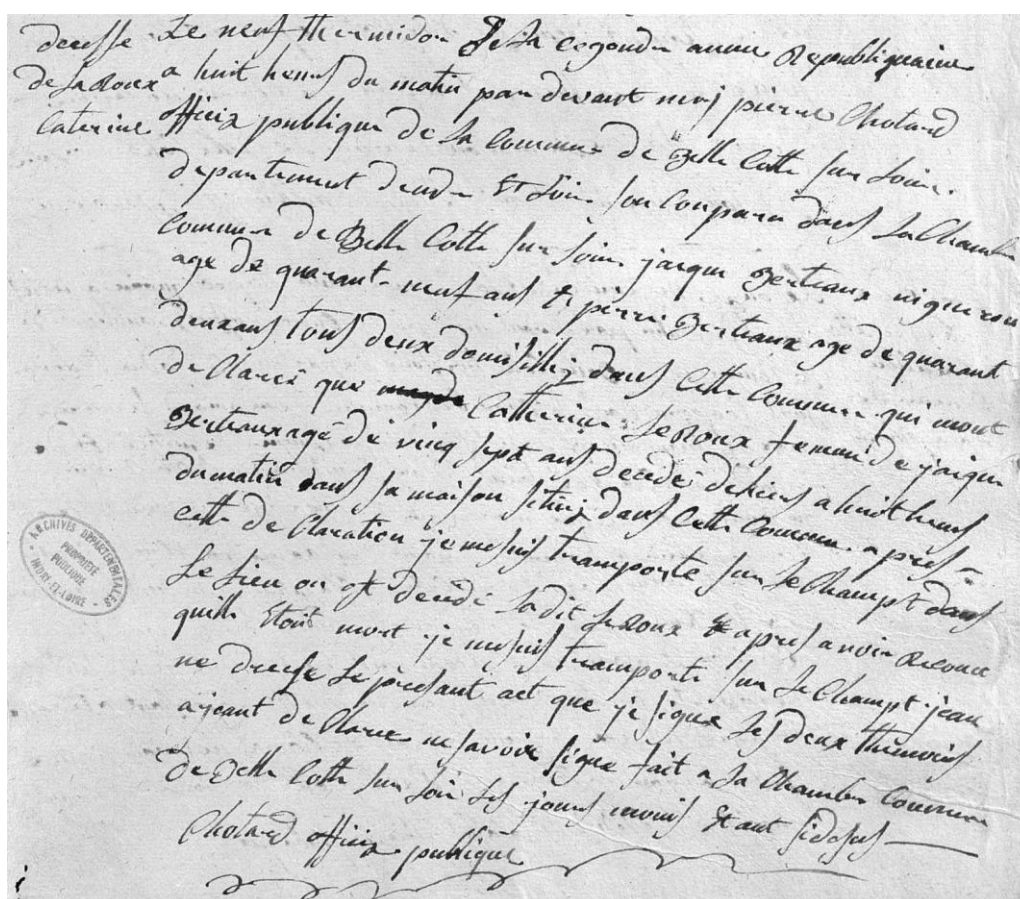 decesse
de Le Roux
Caterine
Le neuf thermidor de la cegonde annee Republiquaine
a huit heures du matin par devant moy pierre Chotard
officie publique de la Commune de Belle Cotte sur Loire
departement dendre Et Loire son Comparu dans La Chambre
Commune de Belle Cotte sur Loire jacque Berteaux vigneron
age de quarant-neuf ans & pierre Berteaux age de quarant
deux ans tous deux domisilliez dans Cette Commune qui mont
de Claree que Catherine Leroux femme de jacque
Berteaux agé de vinq sept ans decedé dehiers a huit heures
du matin dans sa maison situez dans Cette Commune apres
cette de Claration je me suis transporte sur le Champt dans
Le Lieu ou est decedé Ladit Leroux & apres avoir Reconu
quille Etoit mort je me suis transporte sur Le Champt jean
ne dresse Le presant act que je signe Les deux themoins
ayeant de Clare ne savoir signe fait a La Chambre Commune
de Belle Cotte sur Loire Les jours moins & ant sidesus
Chotard officie publique
ARCHIVES DÉPARTEMENTALES
PROPRIÉTÉ
PUBLIQUE
INDRE-ET-LOIRE